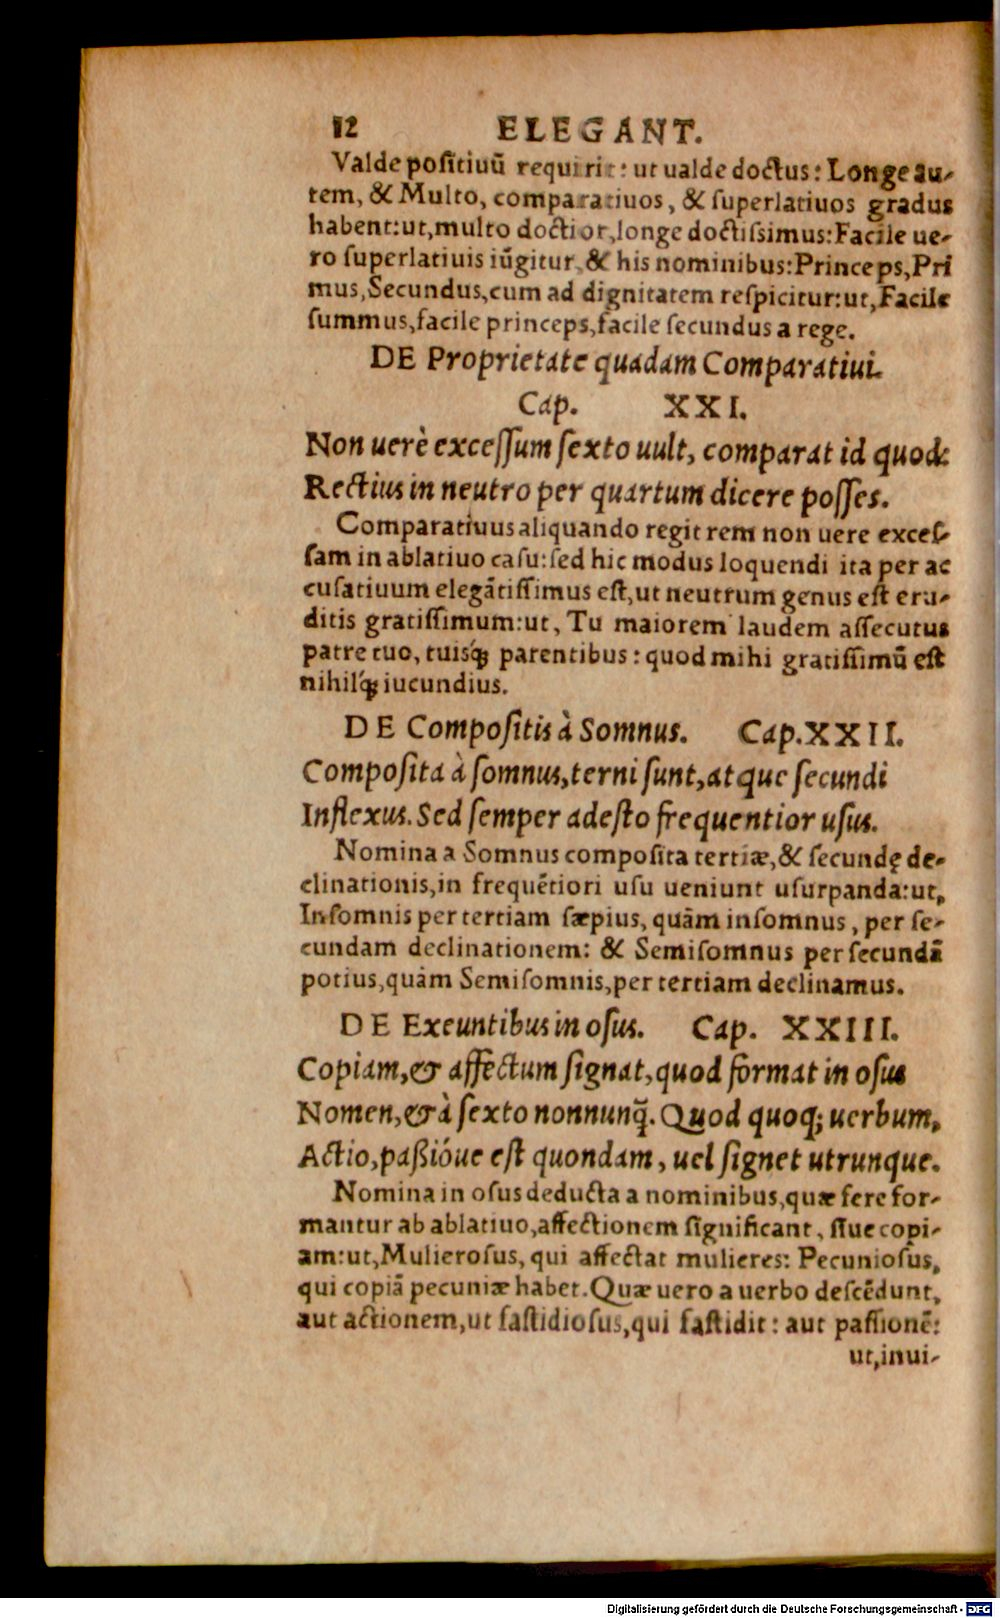 12 ELEGANT.
Valde positiuũ requirit: ut ualde doctus: Longe au-
tem, & Multo, comparatiuos, & superlatiuos gradus
habent:ut,multo doctior,longe doctissimus:Facile ue-
ro superlatiuis iũgitur,& his nominibus:Princeps,Pri
mus,Secundus,cum ad dignitatem respicitur:ut,Facile
summus,facile princeps,facile secundus a rege.
DE Proprietate quadam Comparatiui.
Cap. XXI.
Non uerè excessum sexto uult, comparat id quod:
Rectius in neutro per quartum dicere posses.
Comparatiuus aliquando regit rem non uere exces-
sam in ablatiuo casu:sed hic modus loquendi ita per ac
cusatiuum elegãtissimus est,ut neutrum genus est eru-
ditis gratissimum:ut, Tu maiorem laudem assecutus
patre tuo, tuisq́ꝫ parentibus: quod mihi gratissimũ est
nihilq́ꝫ iucundius.
DE Compositis à Somnus. Cap.XXII.
Composita à somnus,terni sunt,atque secundi
Inflexus. Sed semper adesto frequentior usus.
Nomina a Somnus composita tertiæ,& secundę de-
clinationis,in frequẽtiori usu ueniunt usurpanda:ut,
Insomnis per tertiam sæpius, quãm insomnus, per se-
cundam declinationem: & Semisomnus per secundã
potius,quàm Semisomnis,per tertiam declinamus.
DE Exeuntibus in osus. Cap. XXIII.
Copiam,& affectum signat,quod format in osus
Nomen,& à sexto nonnunq̃. Quod quoq; uerbum,
Actio,paßióue est quondam, uel signet utrunque.
Nomina in osus deducta a nominibus,quæ fere for-
mantur ab ablatiuo,affectionem significant, siue copi-
am:ut,Mulierosus, qui affectat mulieres: Pecuniosus,
qui copiã pecuniæ habet.Quæ uero a uerbo descẽdunt,
aut actionem,ut fastidiosus,qui fastidit: aut passionẽ:
ut,inui-
Digitalisierung gefördert durch die Deutsche Forschungsgemeinschaft - DFG